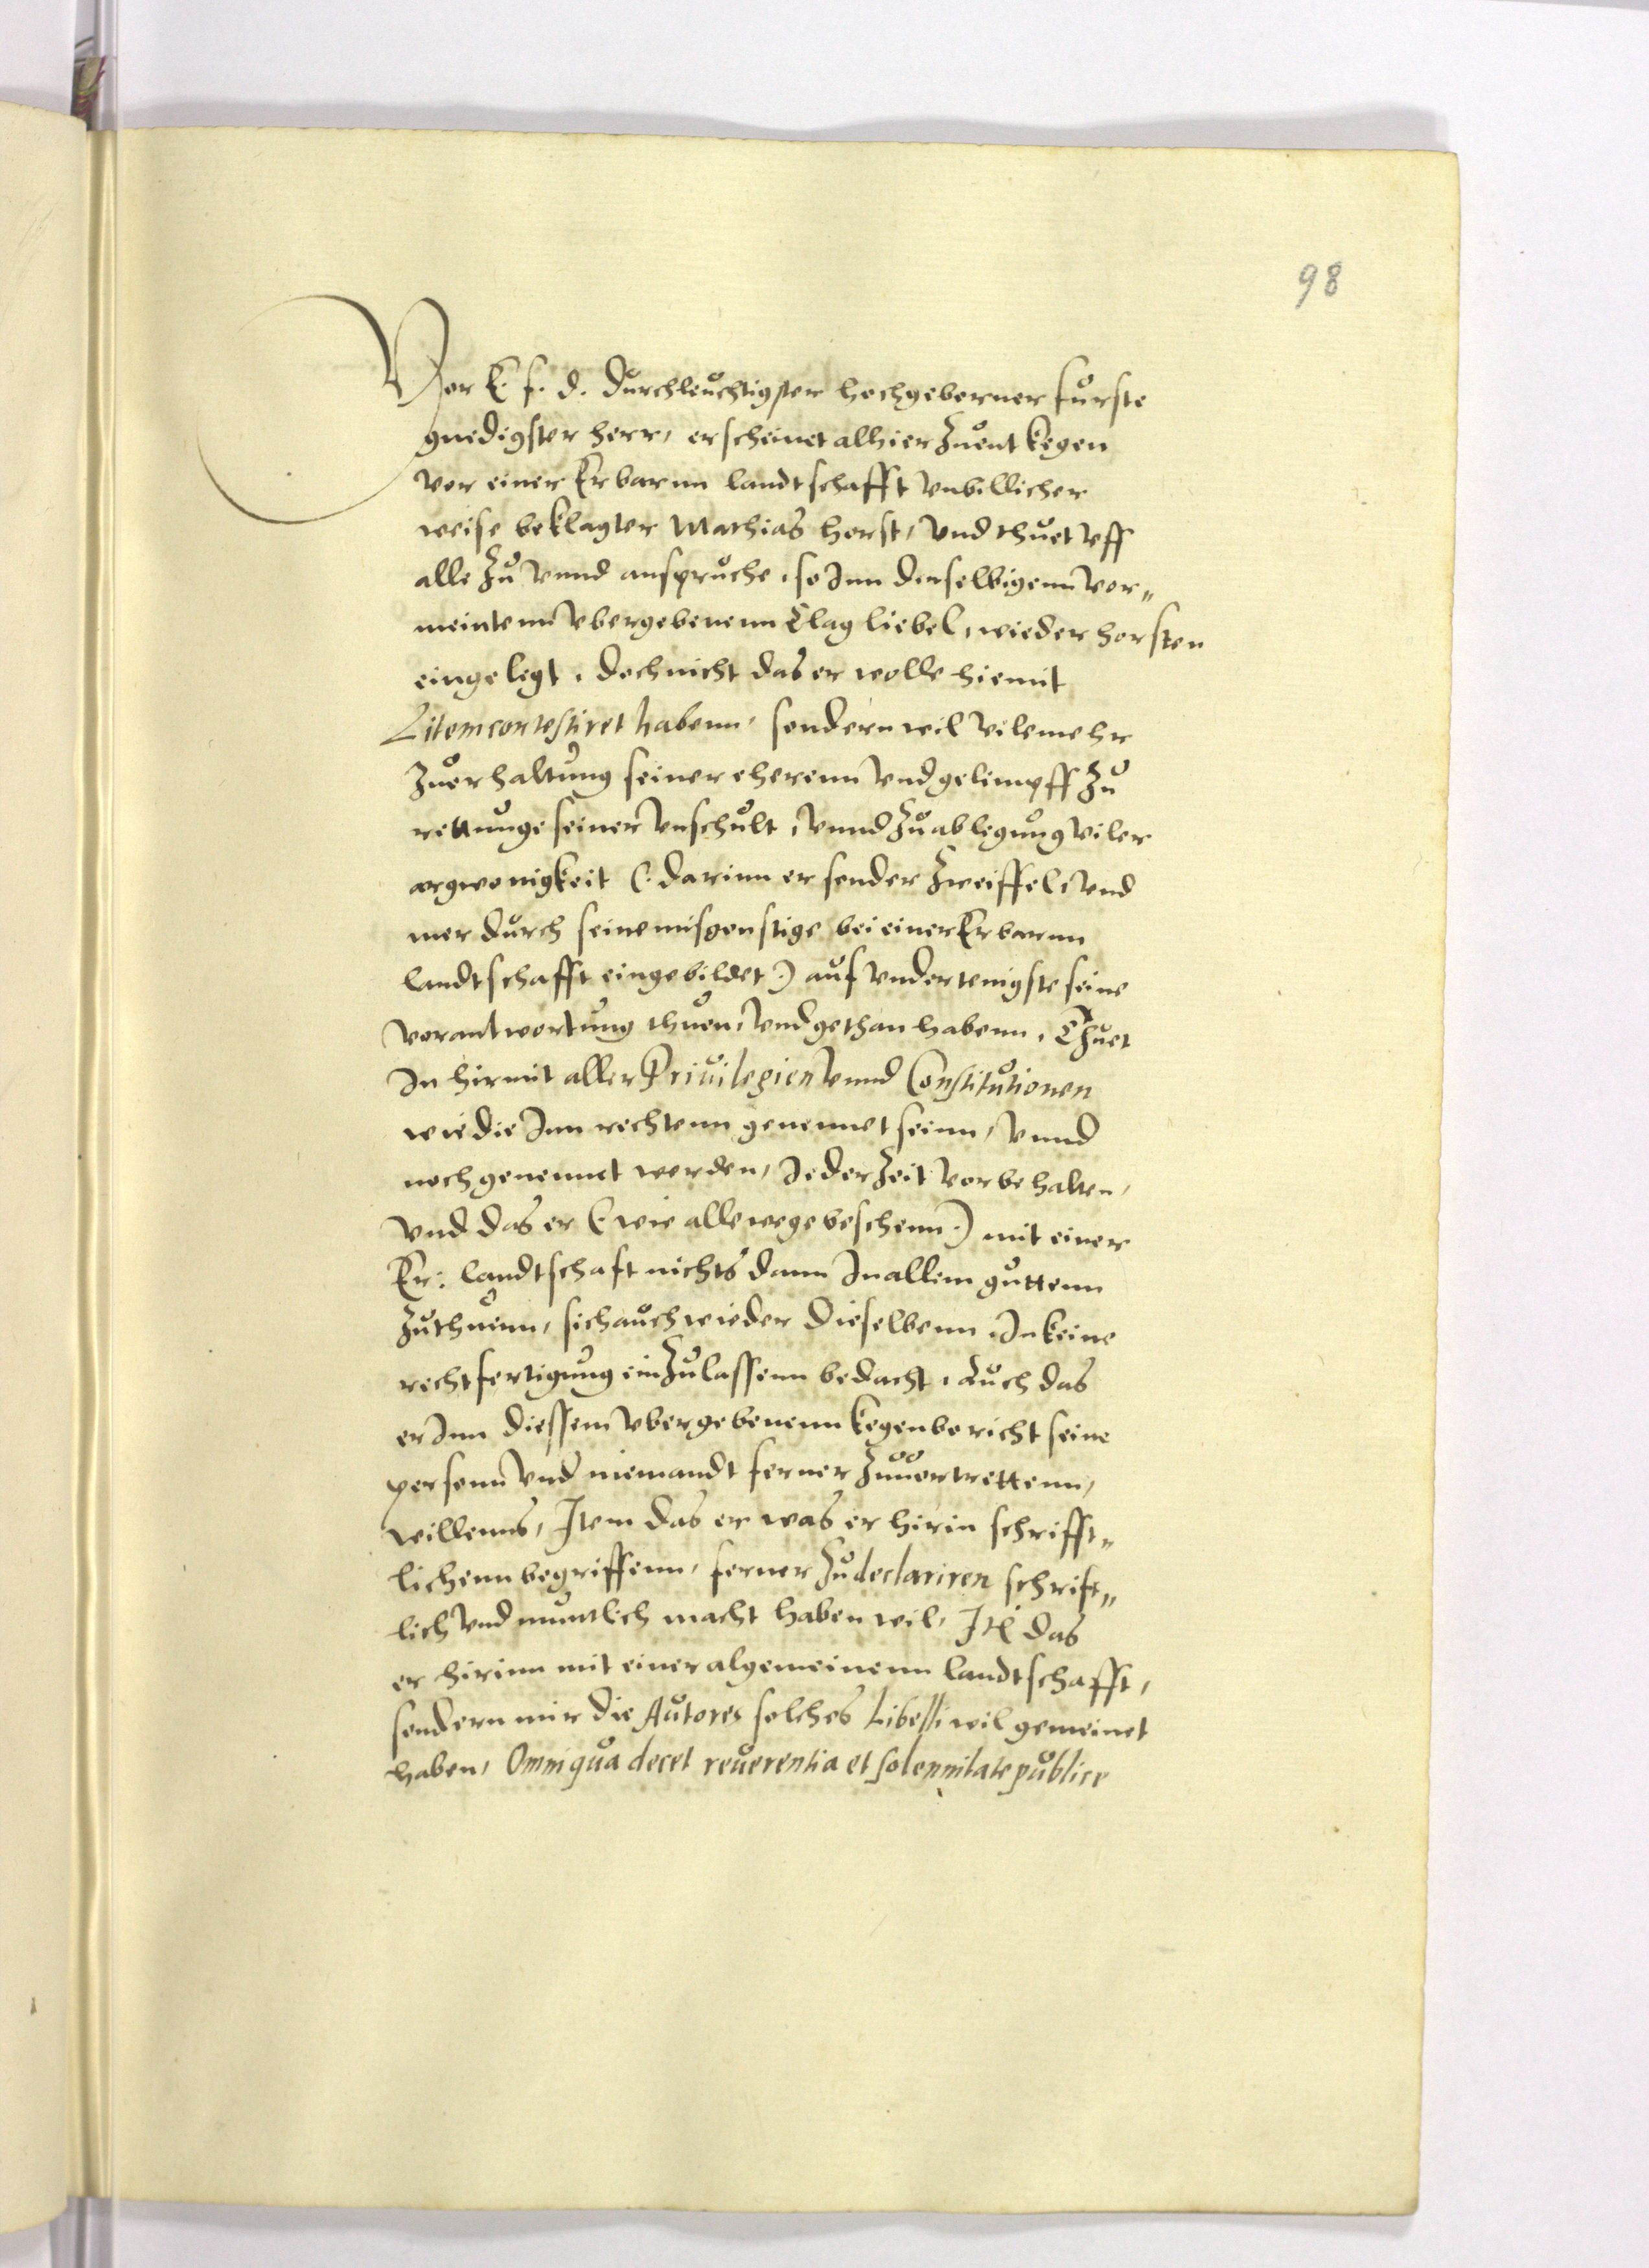 98
Vor E. f. d. durchleuchtigster hochgeborner furste
gnedigster herr, erscheinet alhier zuent kegen
vor einer Erbarnn landtschafft vnbillicher
weise beklagter Mathias horst, vnd thuet vff
alle zu vnnd anspruche, so Inn derselbigenn vor„
meintenn vbergebenenn Clag liebel, wieder horsten
eingelegt, doch nicht das er wolle hiemit
Litem contestiret habenn, sondern wil vilemehr
zuerhaltung seiner eherenn vnd gelimpff zu
rettunge seiner vnschult, vnnd zu ablegung viler
argwonigkeit (: darinn er sonder zweiffel, vnd
mer durch seine misgonstige bei einer Erbarnn
landtschafft eingebildet :) auf vndertenigste seine
vorantwortung thuen, vnd gethan habenn, Thuet
In hirmit aller Priuilegien vnnd Constitutionen
wie die Inn rechtenn genennet seinn, vnnd
noch genennet werden, Jeder zeit vorbehalten,
vnd das er (: wie allewege beschenn :) mit einer
Er: landtschaft nichts dann In allem guttenn
zuthuenn, sich auch wieder dieselbenn, In keine
rechtfertigung einzulassenn bedacht, Auch das
er Inn diessem vbergebenenn kegenbericht seine
personn vnd niemandt ferner zuuortrettenn,
willenns, Item das er was er hirin schrifft„
lichenn begriffenn, ferner zu declariren schrift„
lich vnd muntlich macht haben wil, Itē das
er hirinn mit einer algemeinenn landtschafft,
sondern nur die Autores solches Libelli wil gemeinet
haben, Omni qua decet reuerentia et solennitate publice